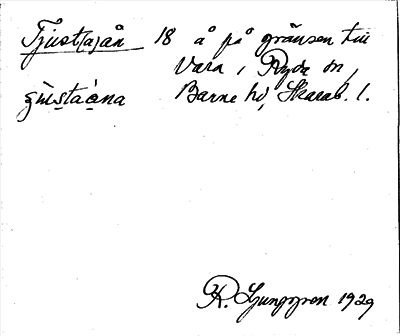 Tjust(a)ån 18 å på gränsen till
Vara i Ryda sn,
Barne hd, Skarab. l.
R. Ljunggren 1929